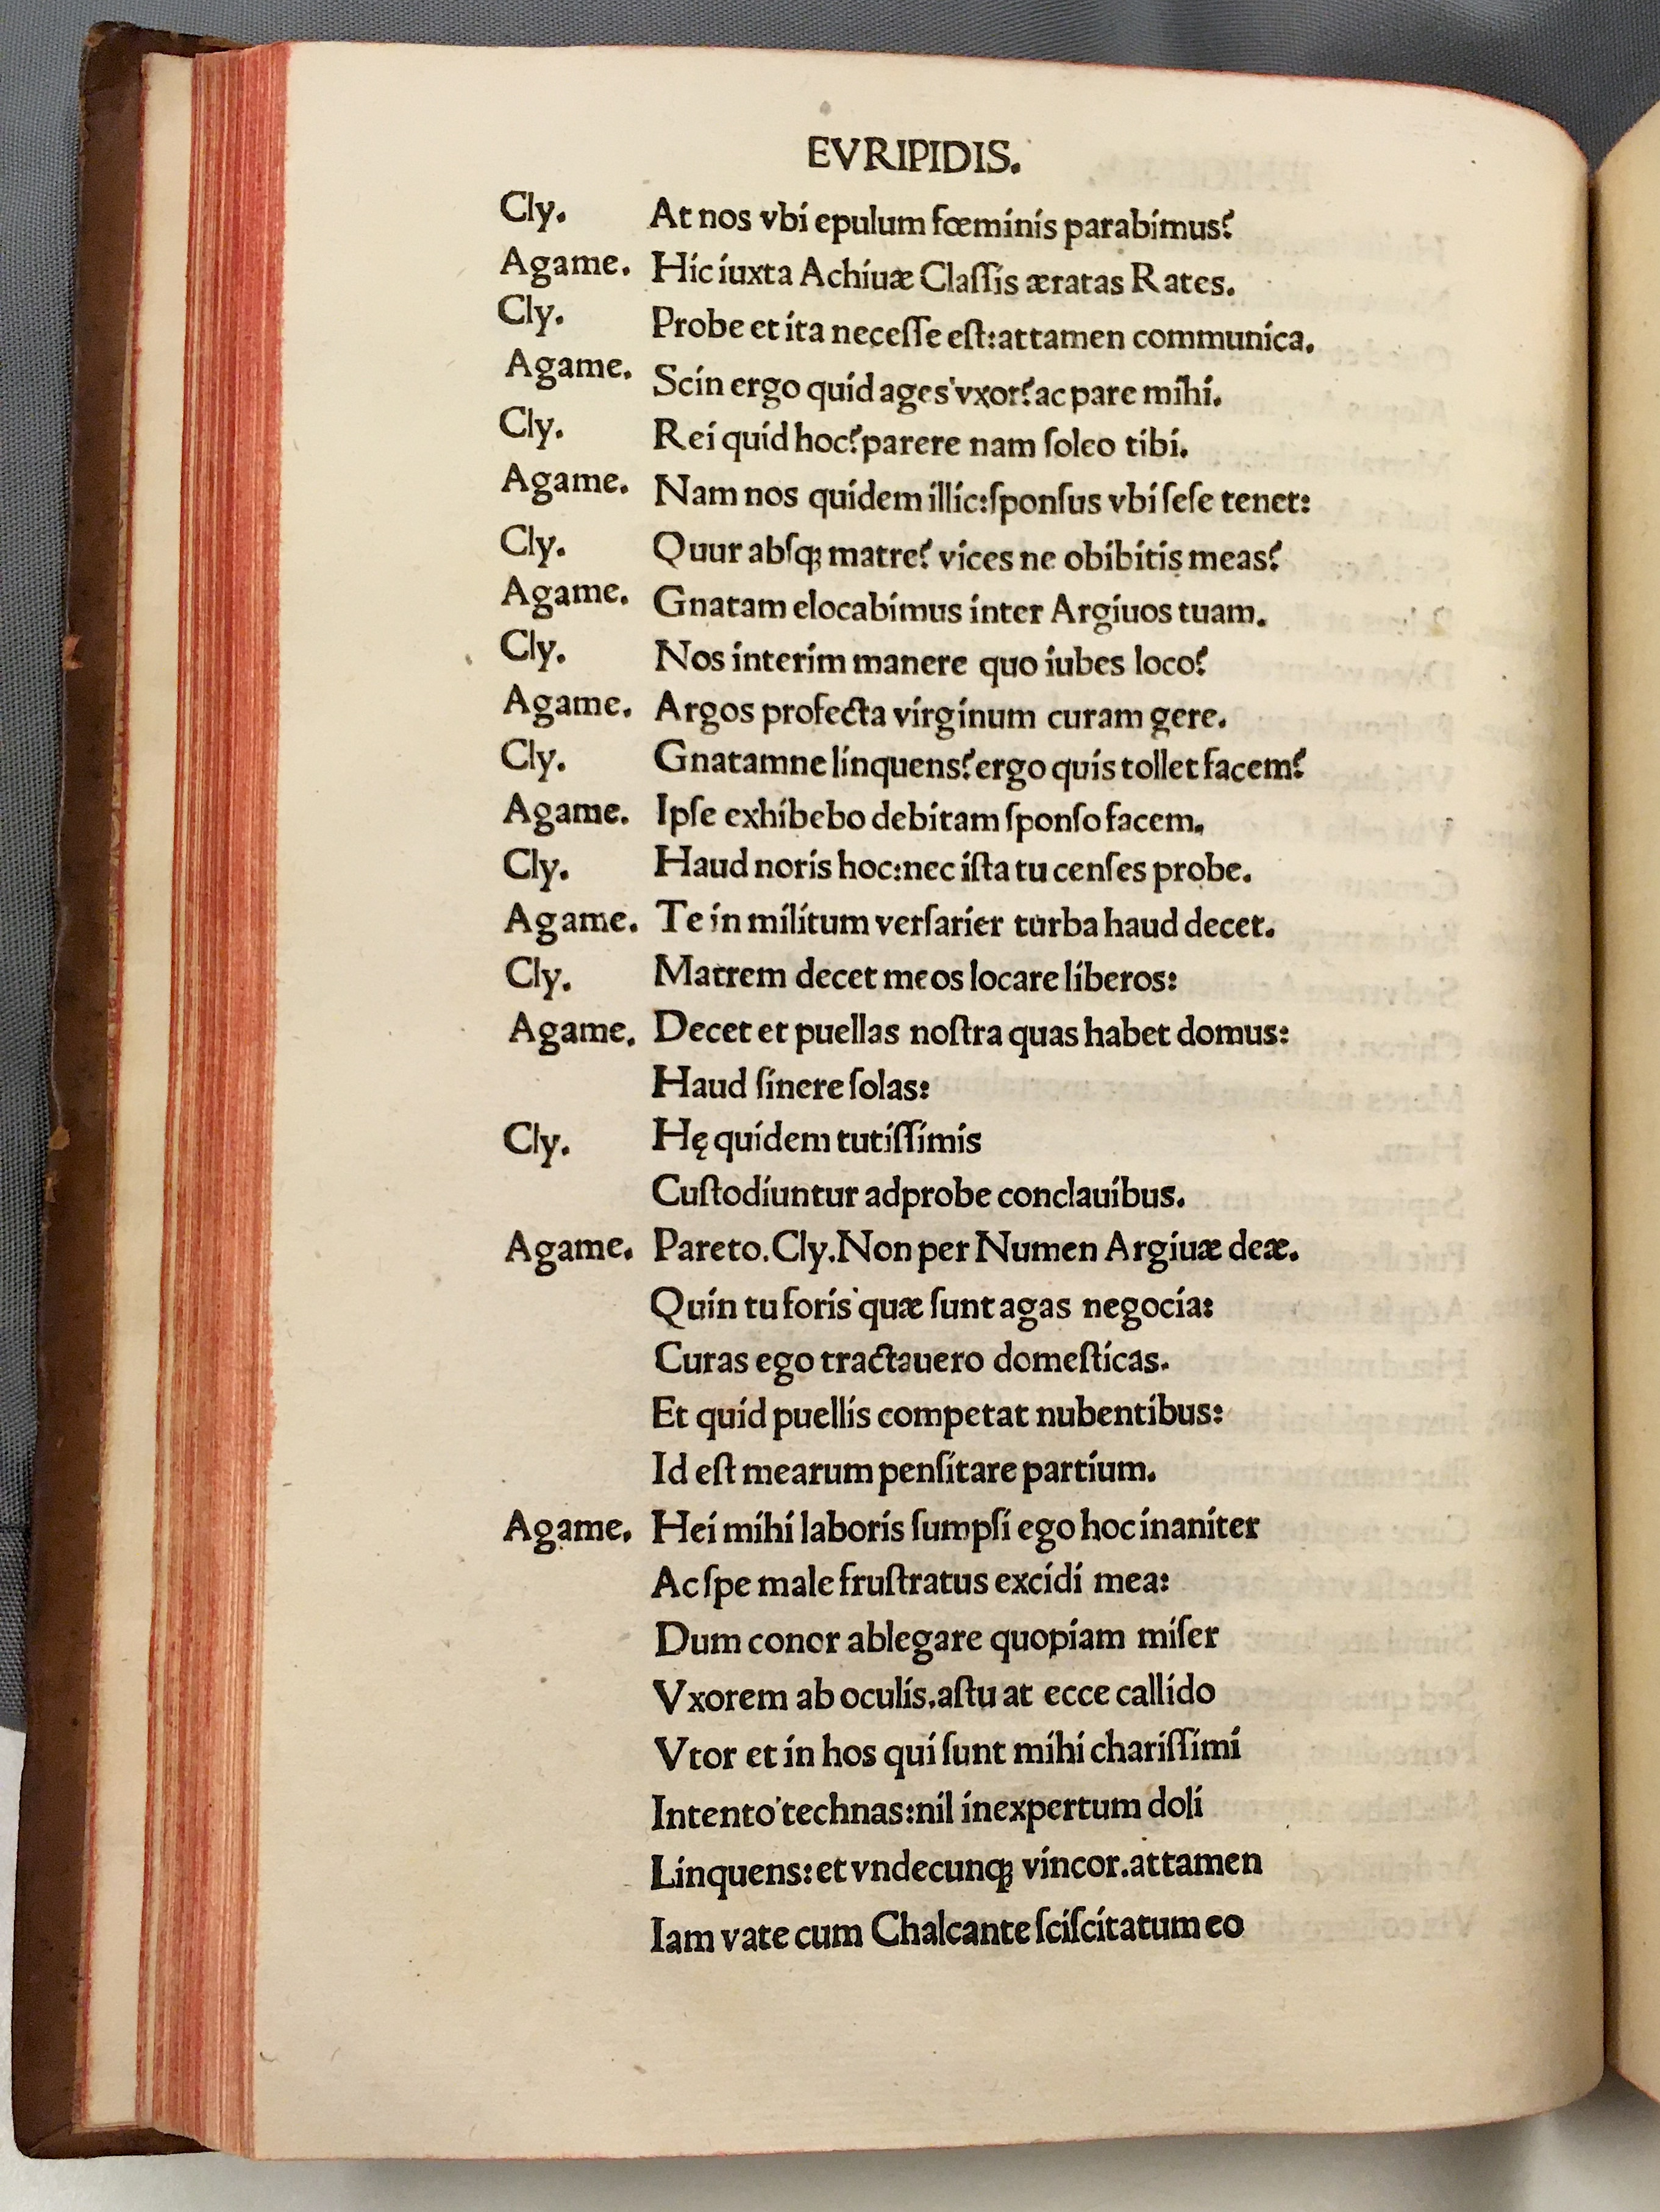 EVRIPIDIS.
Cly. At nos vbi epulum fœminis parabimus?
Agame. Hic iuxta Achiuæ Claſſis æratas Rates.
Cly. Probe et ita neceſſe eſt:attamen communica.
Agame. Scin ergo quid ages'vxor?ac pare mihi.
Cly. Rei quid hoc?parere nam ſoleo tibi.
Agame. Nam nos quidem illic:ſponſus vbi ſeſe tenet:
Cly. Quur abſqꝫ matre? vices ne obibitis meas?
Agame. Gnatam elocabimus inter Argiuos tuam.
Cly. Nos interim manere quo iubes loco?
Agame. Argos profecta virginum curam gere.
Cly. Gnatamne linquens?ergo quis tollet facem?
Agame. Ipſe exhibebo debitam ſponſo facem.
Cly. Haud noris hoc:nec iſta tu cenſes probe.
Agame. Te in militum verſarier turba haud decet.
Cly. Matrem decet meos locare liberos:
Agame. Decet et puellas noſtra quas habet domus:
Haud ſinere ſolas:
Cly. Hę quidem tutiſſimis
Cuſtodiuntur adprobe conclauibus.
Agame. Pareto.Cly.Non per Numen Argiuæ deæ.
Quin tu foris'quæ ſunt agas negocia:
Curas ego tractauero domeſticas.
Et quid puellis competat nubentibus:
Id eſt mearum penſitare partium.
Agame. Hei mihi laboris ſumpſi ego hoc inaniter
Ac ſpe male fruſtratus excidi mea:
Dum conor ablegare quopiam miſer
Vxorem ab oculis.aſtu at ecce callido
Vtor et in hos qui ſunt mihi chariſſimi
Intento'technas:nil inexpertum doli
Linquens:et vndecunqꝫ vincor.attamen
Iam vate cum Chalcante ſciſcitatum eo